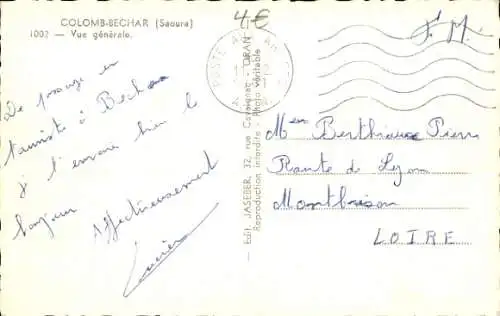 COLOMB-BECHAR (Saoura)
1002 — Vue générale.
4€
F. M.
POSTE AUX AR
De passage en
touriste à Bechar
je t'envoie bien le
bonjour
Affectueusement
Lucien
— Edit. JASEBER, 32, rue Cavaignac - ORAN —
Reproduction interdite - Photo véritable
Mer Berthiaux Pierre
Route de Lyon
Montbrison
LOIRE